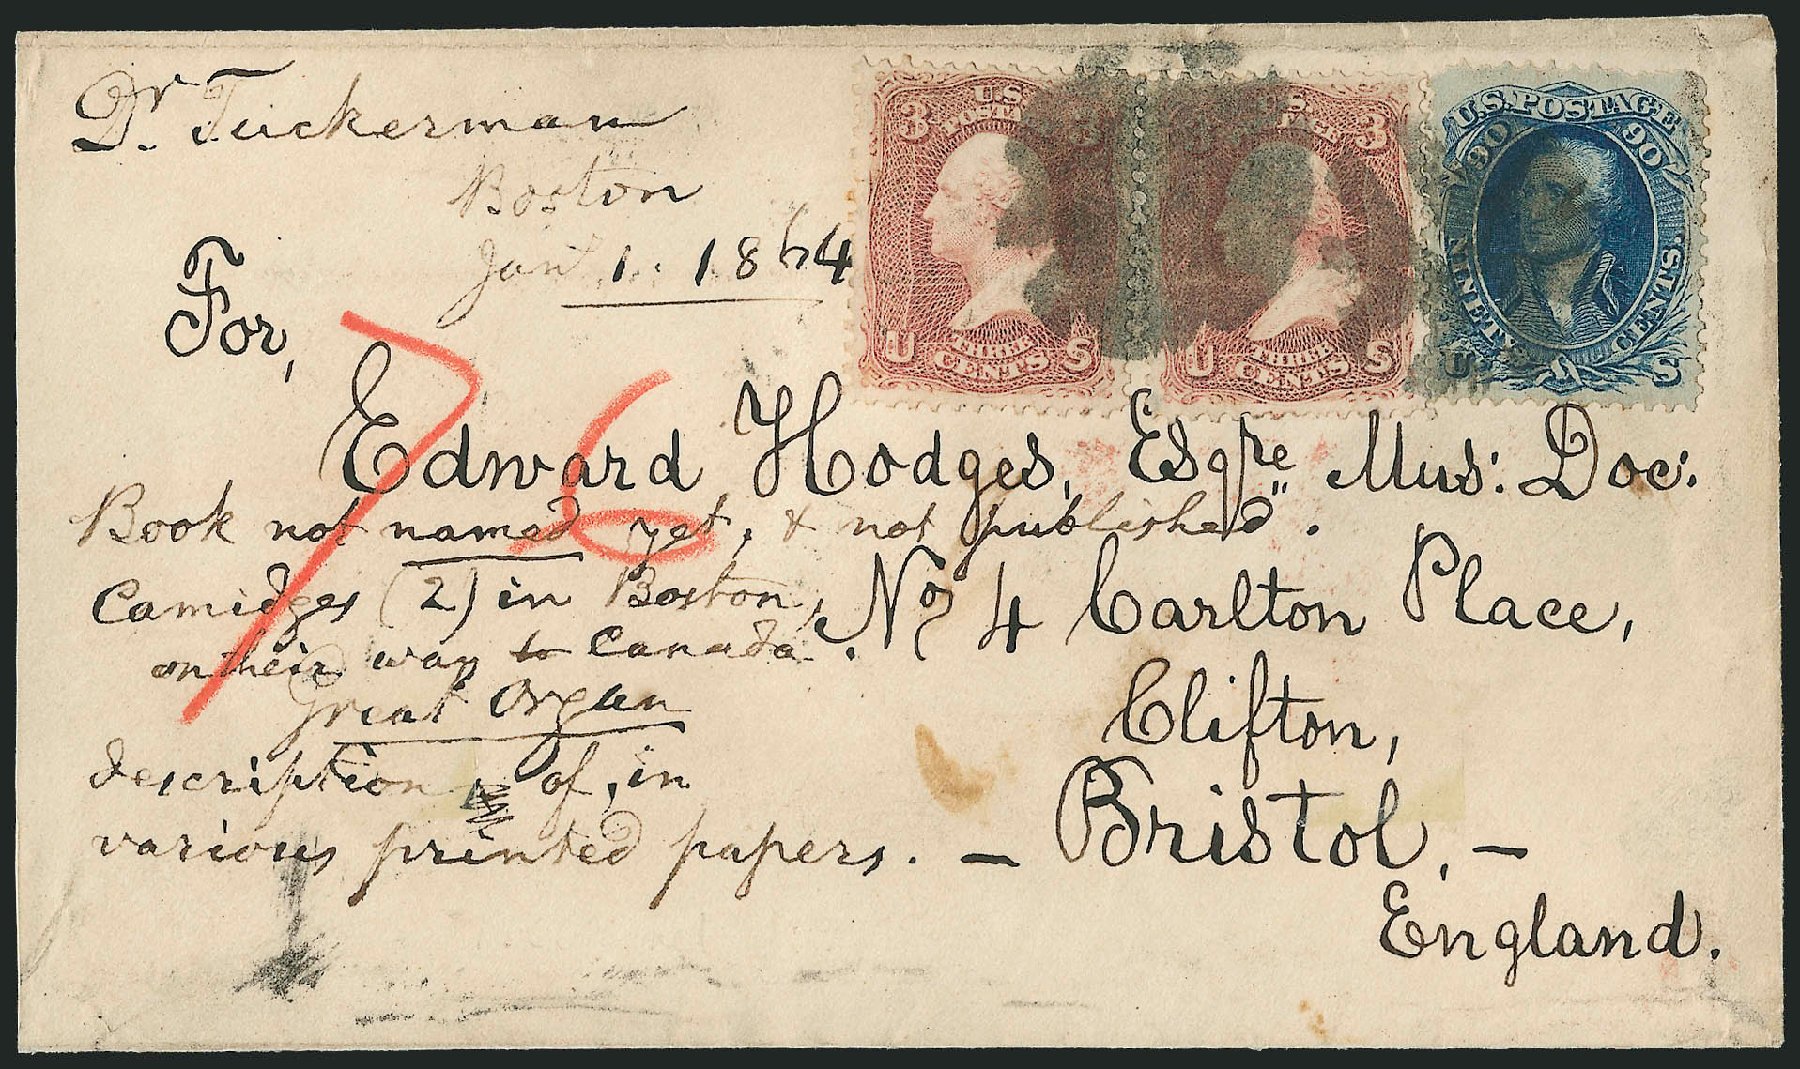 Dr. Tuckerman
Boston
Jany 1. 1864
U.S. POSTAGE
3 3
THREE CENTS
U S
U.S. POSTAGE
3
THREE CENTS
U S
U.S. POSTAGE
90 90
NINETY CENTS
U S
For,
Edward Hodges, Esqre Mus: Doc:
76
Book not named yet, & not published.
Camidges (2) in Boston,
No 4 Carlton Place,
on their way to Canada.
Clifton,
Great Organ
description, of, in
Bristol, —
various printed papers. —
England.